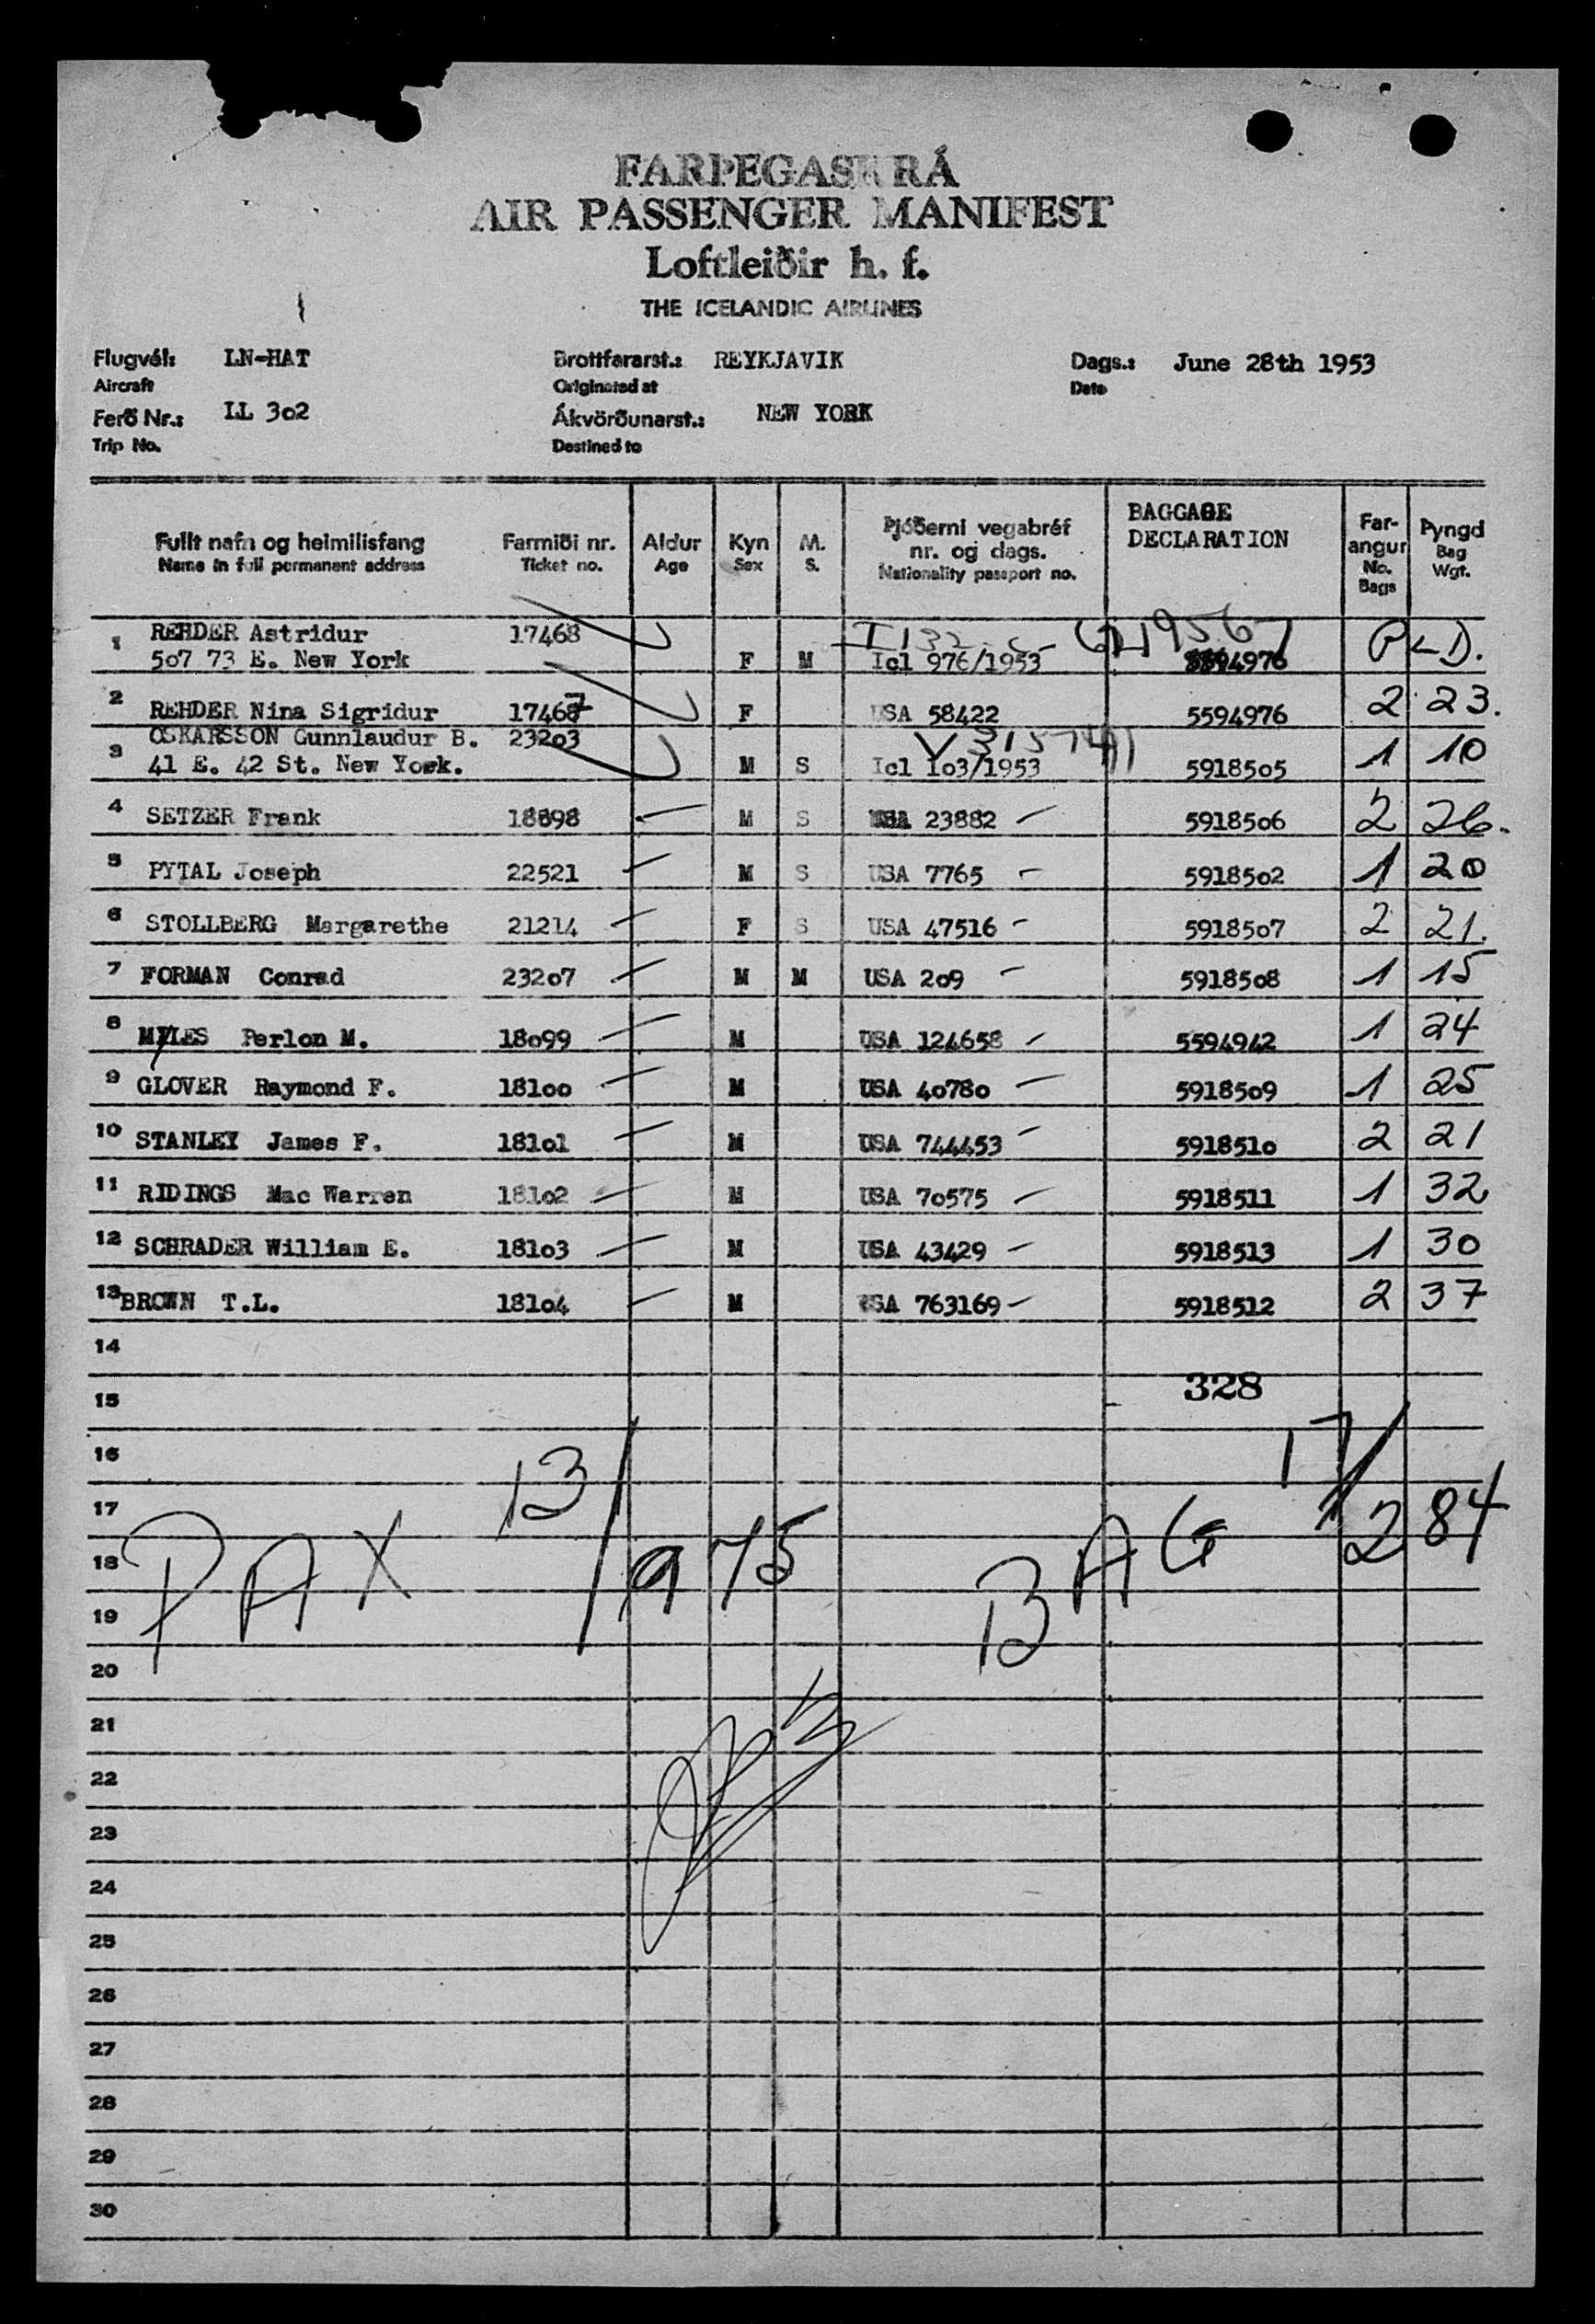 FARÞEGASKRÁ
AIR PASSENGER MANIFEST
Loftleiðir h. f.
THE ICELANDIC AIRLINES
Flugvél: LN-HAT Brottfararst.: REYKJAVIK Dags.: June 28th 1953
Aircraft Originated at Date
Ferð Nr.: LL 302 Ákvörðunarst.: NEW YORK
Trip No. Destined to
Fullt nafn og heimilisfang Farmiði nr. Aldur Kyn M. Þjóðerni vegabréf nr. og dags. BAGGAGE DECLARATION Farangur Þyngd
Name in full permanent address Ticket no. Age Sex S. Nationality passport no. No. Bags Bag Wgt.
1 REHDER Astridur 17468
507 73 E. New York F M Icl 976/1953 5594976 P L D.
2 REHDER Nina Sigridur 17467 F USA 58422 5594976 2 23.
3 OSKARSSON Gunnlaudur B. 23203
41 E. 42 St. New York. M S Icl 103/1953 5918505 1 10
4 SETZER Frank 18898 M S USA 23882 5918506 2 26.
5 PYTAL Joseph 22521 M S USA 7765 5918502 1 20
6 STOLLBERG Margarethe 21214 F S USA 47516 5918507 2 21.
7 FORMAN Conrad 23207 M M USA 209 5918508 1 15
8 MYLES Perlon M. 18099 M USA 124658 5594942 1 24
9 GLOVER Raymond F. 18100 M USA 40780 5918509 1 25
10 STANLEY James F. 18101 M USA 744453 5918510 2 21
11 RIDINGS Mac Warren 18102 M USA 70575 5918511 1 32
12 SCHRADER William E. 18103 M USA 43429 5918513 1 30
13 BROWN T.L. 18104 M USA 763169 5918512 2 37
14
328
15
16
17
PAX 13/975 BAG 17/284
18
19
20
21
22
23
24
25
26
27
28
29
30